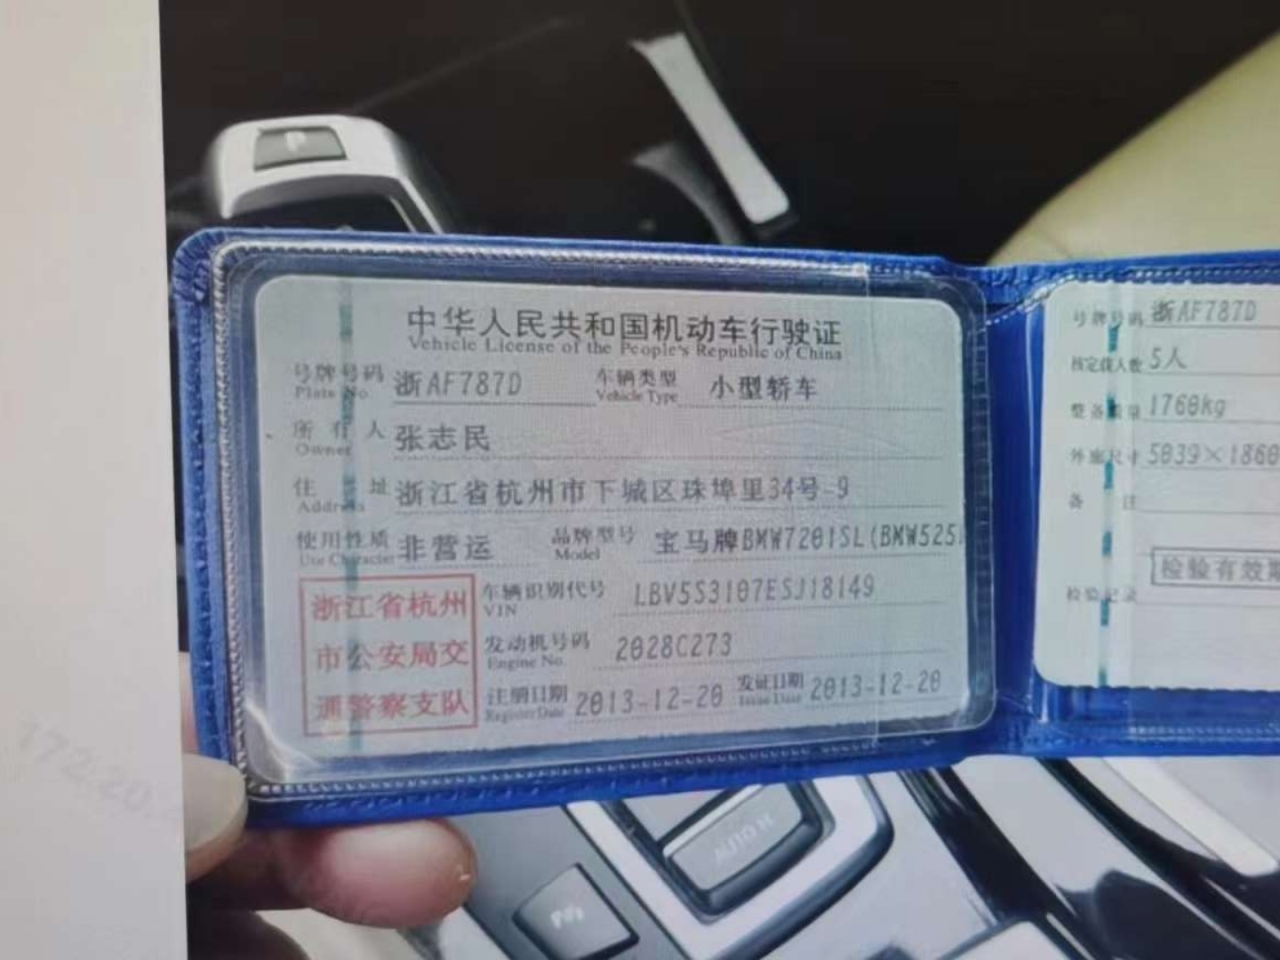 P
中华人民共和国机动车行驶证
Vehicle License of the People's Republic of China
号牌号码 浙AF787D 车辆类型 小型轿车
Plate No Vehicle Type
所有人 张志民
Owner
住址 浙江省杭州市下城区珠埠里34号-9
Address
使用性质 非营运 品牌型号 宝马牌BMW7201SL(BMW525
Use Character Model
浙江省杭州
市公安局交
通警察支队
车辆识别代号 LBV5S3107ESJ18149
VIN
发动机号码 2028C273
Engine No.
注册日期 2013-12-20 发证日期 2013-12-20
Register Date Issue Date
号牌号码 浙AF787D
核定载人数 5人
整备质量 1760kg
外廓尺寸 5039×1860
备注
检验有效期
检验记录
AUTO H
172.20.